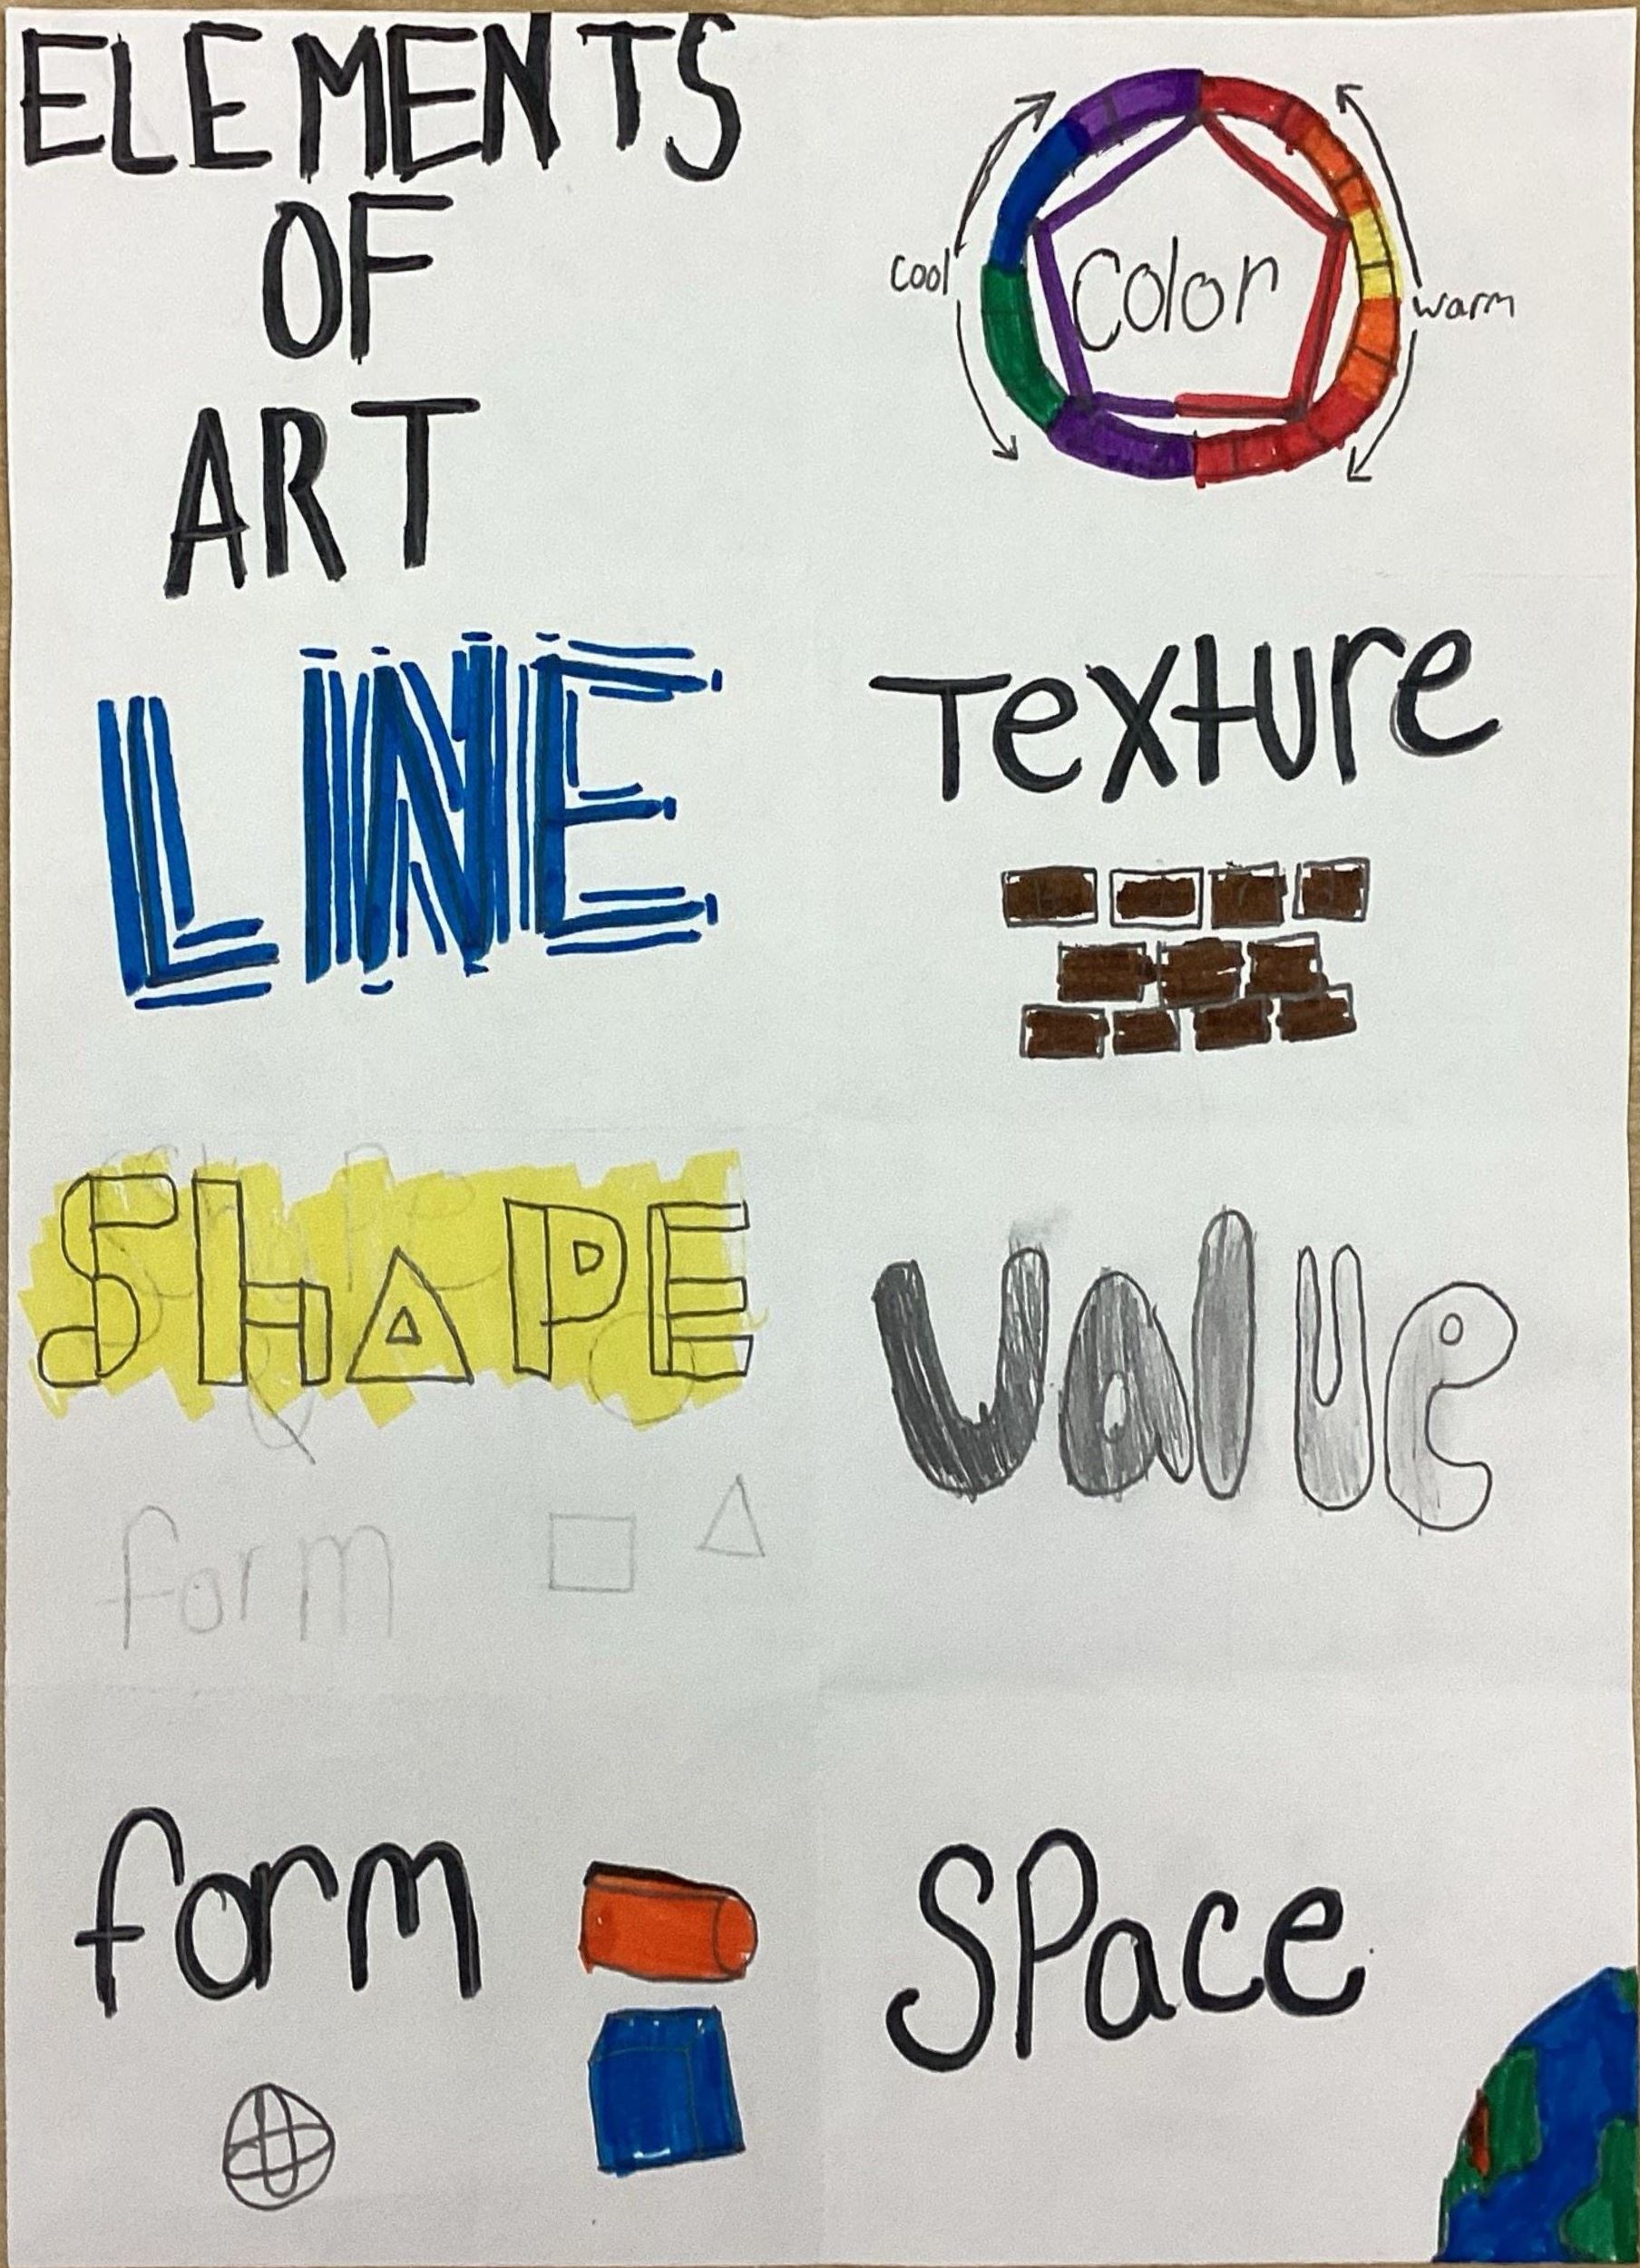 ELEMENTS
OF
ART
cool
Color
warm
LINE
Texture
Shape
SHAPE
Value
form
form
SPace